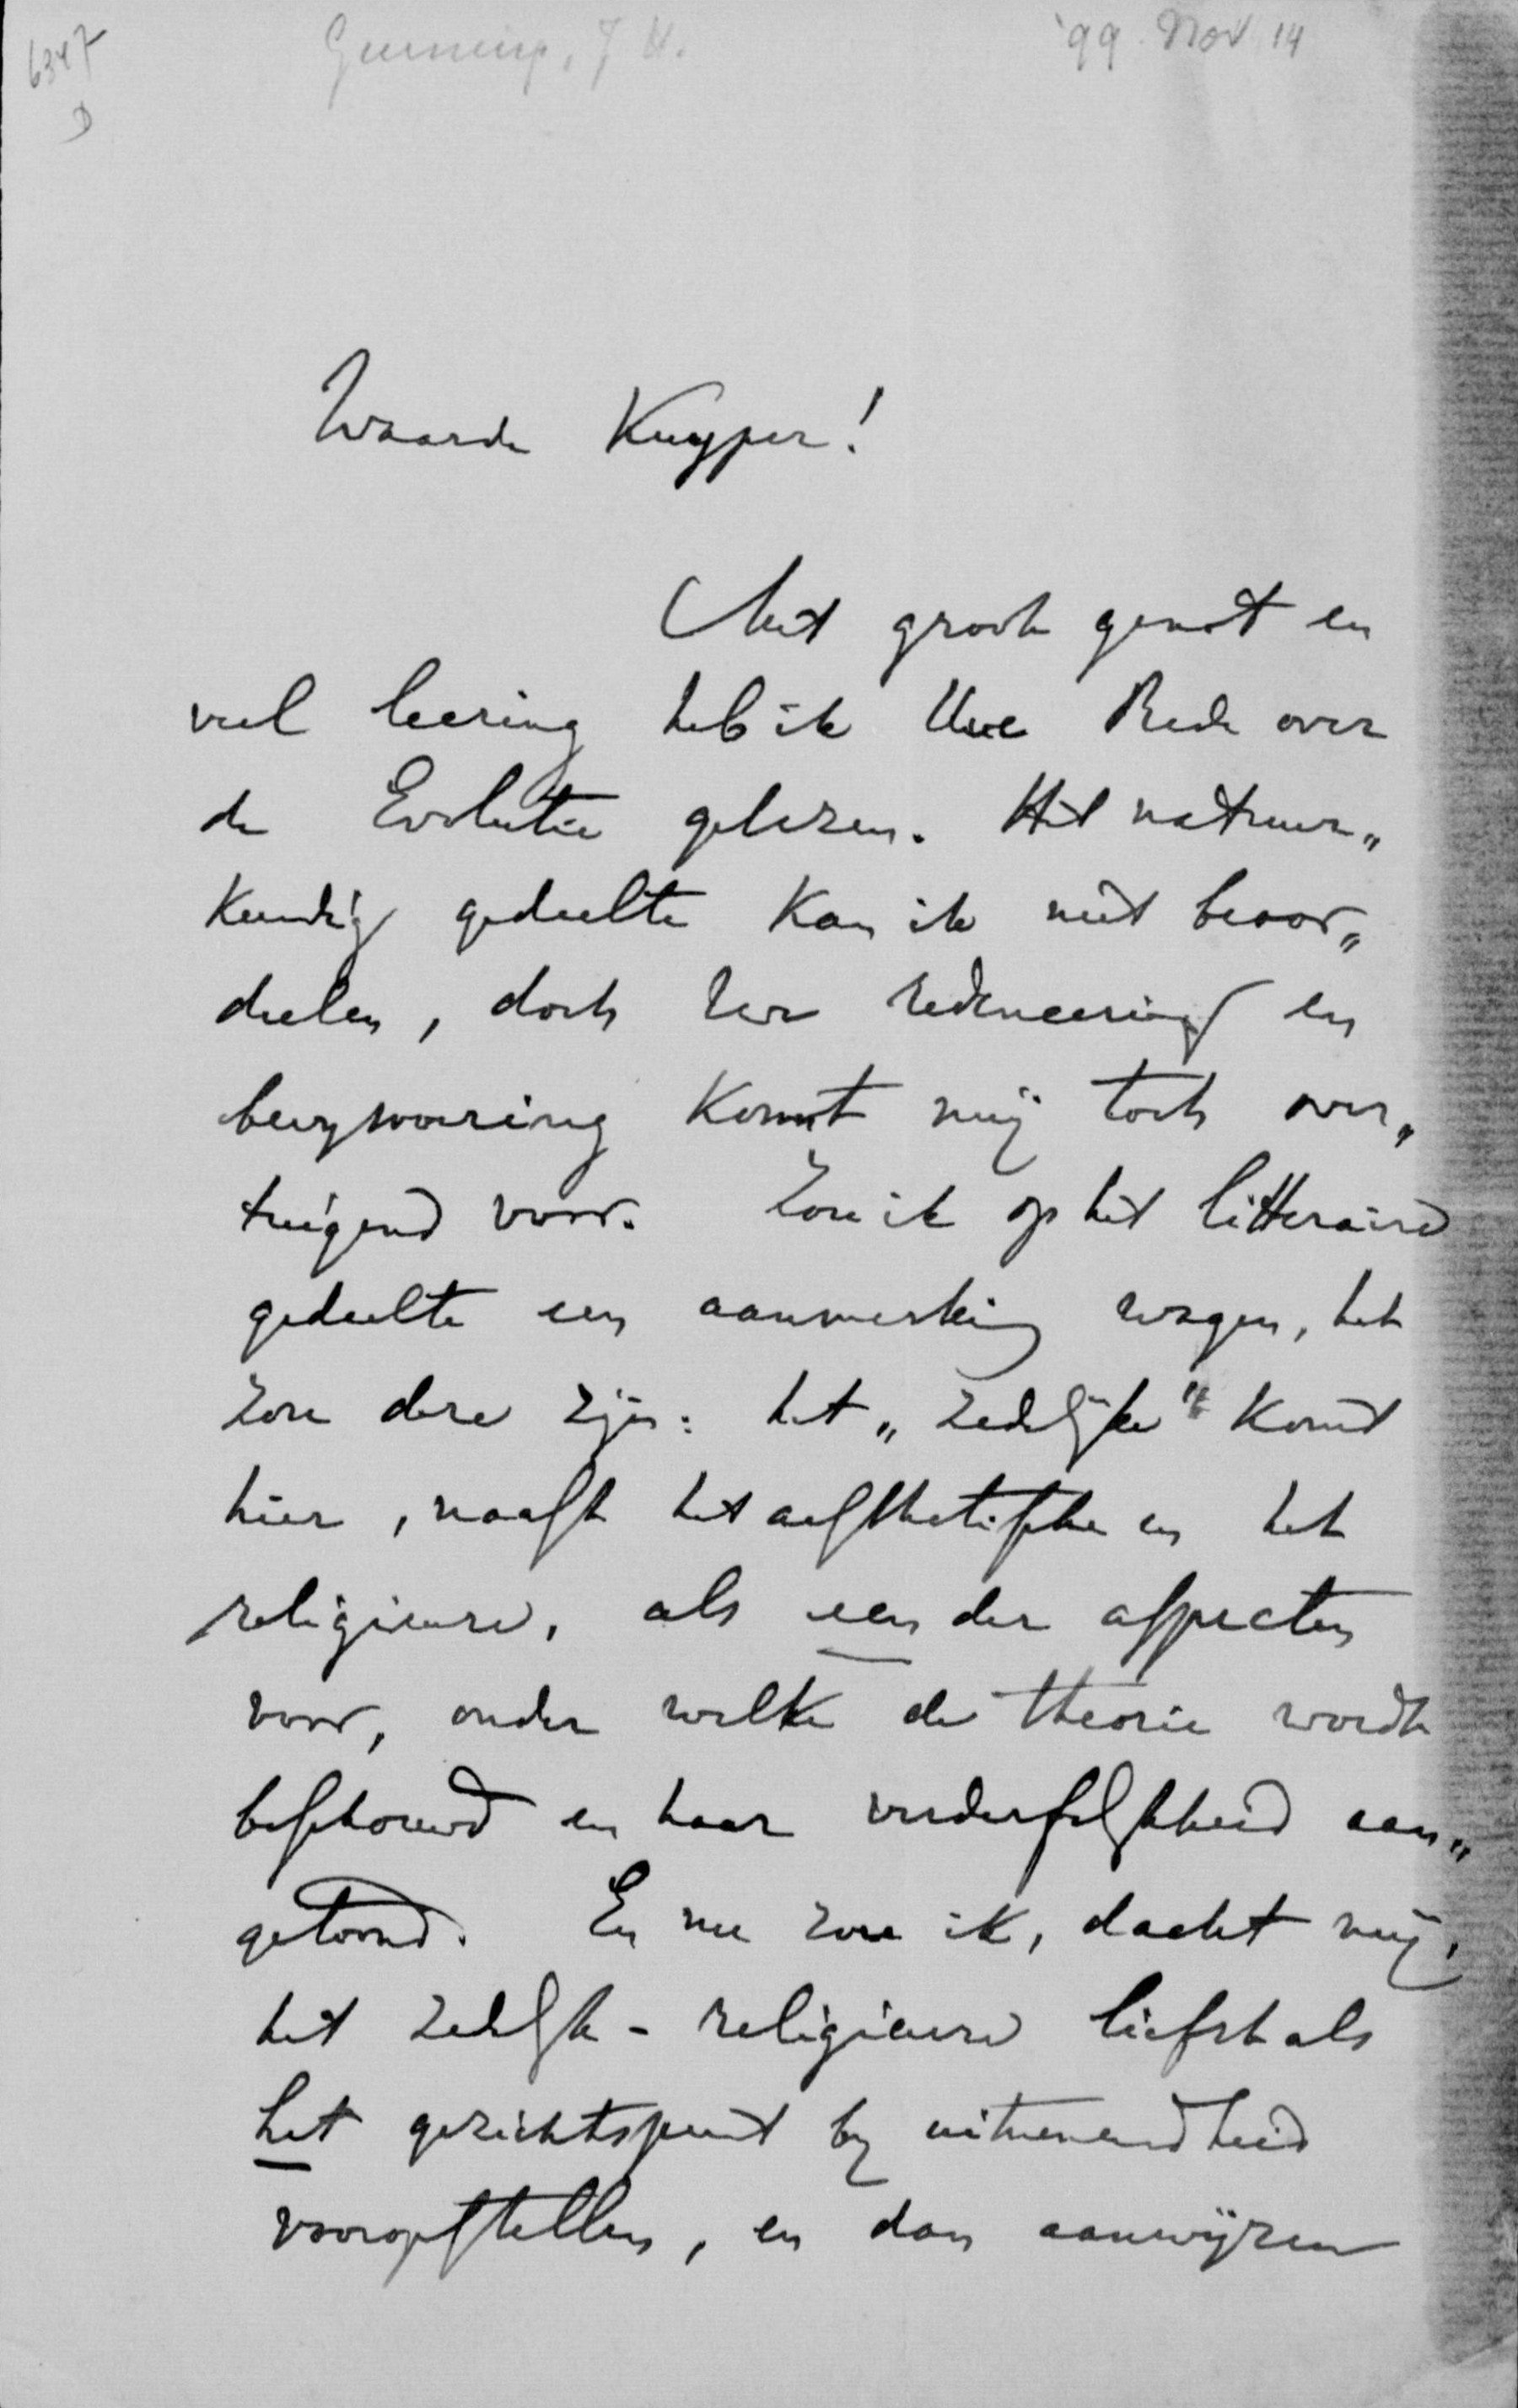 6347
D
Gunning, J H.
'99 Nov 14
Waarde Kuyper!
Met groote genot en
veel leering heb ik Uwe Rede over
de Evolutie gelezen. Het natuur„
kundig gedeelte kan ik niet beoor„
deelen, doch Uw redeneering en
bewysvoering komt mij toch over„
tuigend voor. Zou ik op het litteraire
gedeelte een aanmerking wagen, het
zou deze zijn: het „zedelijke" komt
hier, naast het aesthetische en het
religieuse, als een der aspecten
voor, onder welke de theorie wordt
beschouwd en haar verderfelijkheid aan„
getoond. En nu zou ik, dacht mij,
het zedelijk-religieuse liefst als
het gezichtspunt by uitnemendheid
vooropstellen, en dan aanwijzen